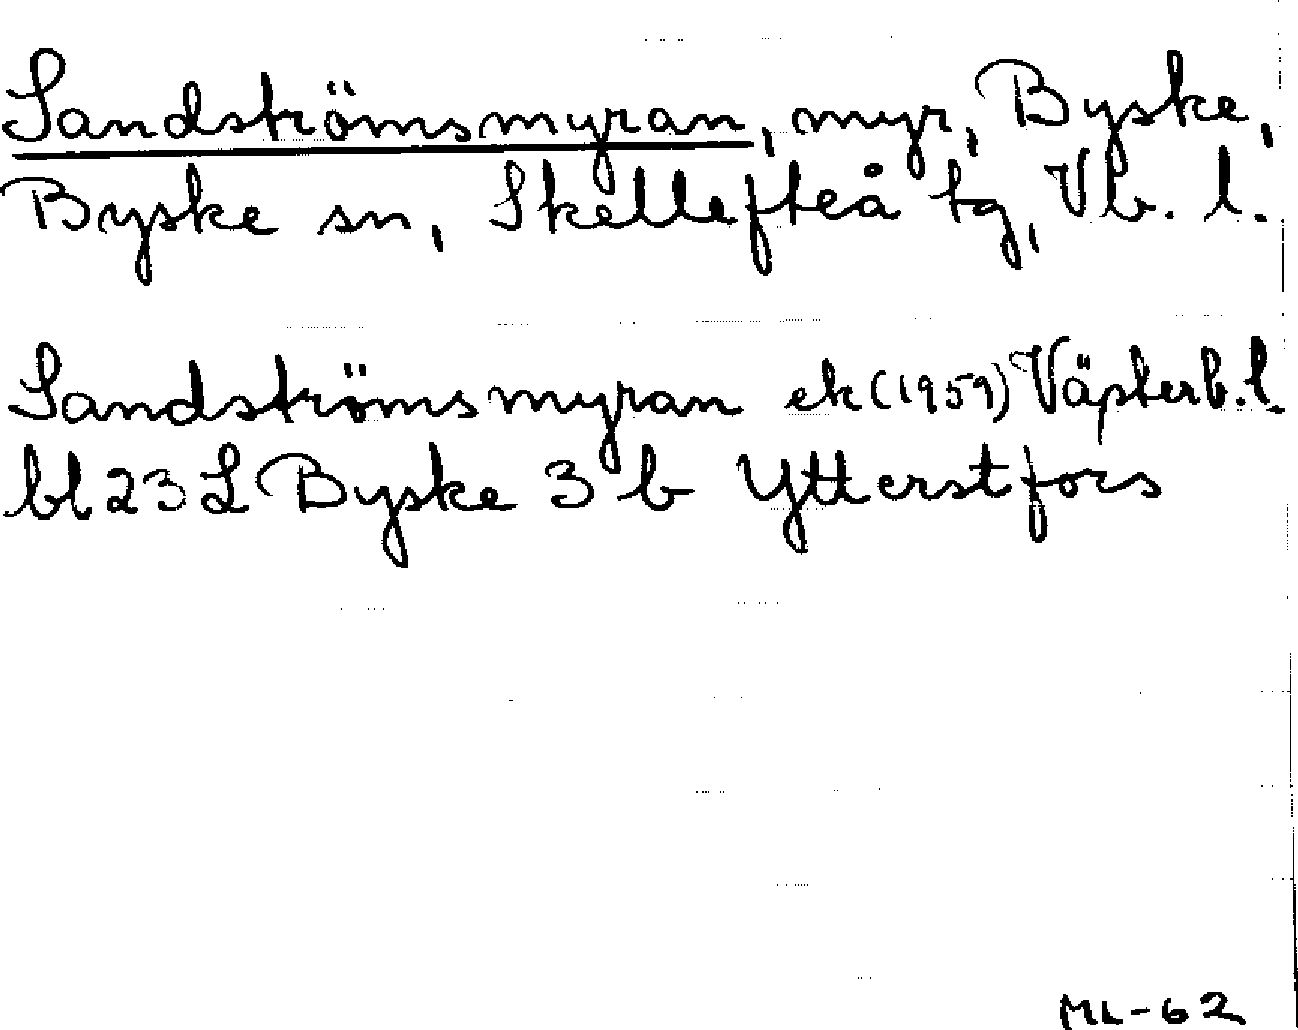 Sandströmsmyran, myr, Byske,
Byske sn, Skellefteå tg, Vb. l.
Sandströmsmyran ek (1959) Västerb. l.
bl 23 L Byske 3 b Ytterstfors
ML-62